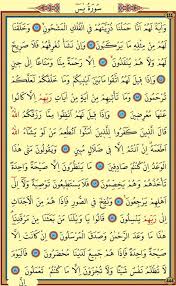 سُورَةُ يٰسٓ
وَاٰيَةٌ لَهُمْ اَنَّا حَمَلْنَا ذُرِّيَّتَهُمْ فِي الْفُلْكِ الْمَشْحُونِ وَخَلَقْنَا
لَهُمْ مِنْ مِثْلِهِ مَا يَرْكَبُونَ وَاِنْ نَشَأْ نُغْرِقْهُمْ فَلَا صَرِيخَ
لَهُمْ وَلَا هُمْ يُنْقَذُونَ اِلَّا رَحْمَةً مِنَّا وَمَتَاعًا اِلٰى حِينٍ
وَاِذَا قِيلَ لَهُمُ اتَّقُوا مَا بَيْنَ اَيْدِيكُمْ وَمَا خَلْفَكُمْ لَعَلَّكُمْ
تُرْحَمُونَ وَمَا تَأْتِيهِمْ مِنْ اٰيَةٍ مِنْ اٰيَاتِ رَبِّهِمْ اِلَّا كَانُوا
عَنْهَا مُعْرِضِينَ وَاِذَا قِيلَ لَهُمْ اَنْفِقُوا مِمَّا رَزَقَكُمُ اللّٰهُ
قَالَ الَّذِينَ كَفَرُوا لِلَّذِينَ اٰمَنُوا اَنُطْعِمُ مَنْ لَوْ يَشَاءُ اللّٰهُ
اَطْعَمَهُ اِنْ اَنْتُمْ اِلَّا فِي ضَلَالٍ مُبِينٍ وَيَقُولُونَ مَتٰى هٰذَا
الْوَعْدُ اِنْ كُنْتُمْ صَادِقِينَ مَا يَنْظُرُونَ اِلَّا صَيْحَةً وَاحِدَةً
تَأْخُذُهُمْ وَهُمْ يَخِصِّمُونَ فَلَا يَسْتَطِيعُونَ تَوْصِيَةً وَلَا اِلٰى
اَهْلِهِمْ يَرْجِعُونَ وَنُفِخَ فِي الصُّورِ فَاِذَا هُمْ مِنَ الْاَجْدَاثِ
اِلٰى رَبِّهِمْ يَنْسِلُونَ قَالُوا يَا وَيْلَنَا مَنْ بَعَثَنَا مِنْ مَرْقَدِنَا
هٰذَا مَا وَعَدَ الرَّحْمٰنُ وَصَدَقَ الْمُرْسَلُونَ اِنْ كَانَتْ اِلَّا
صَيْحَةً وَاحِدَةً فَاِذَا هُمْ جَمِيعٌ لَدَيْنَا مُحْضَرُونَ فَالْيَوْمَ
لَا تُظْلَمُ نَفْسٌ شَيْئًا وَلَا تُجْزَوْنَ اِلَّا مَا كُنْتُمْ تَعْمَلُونَ
اِنَّ